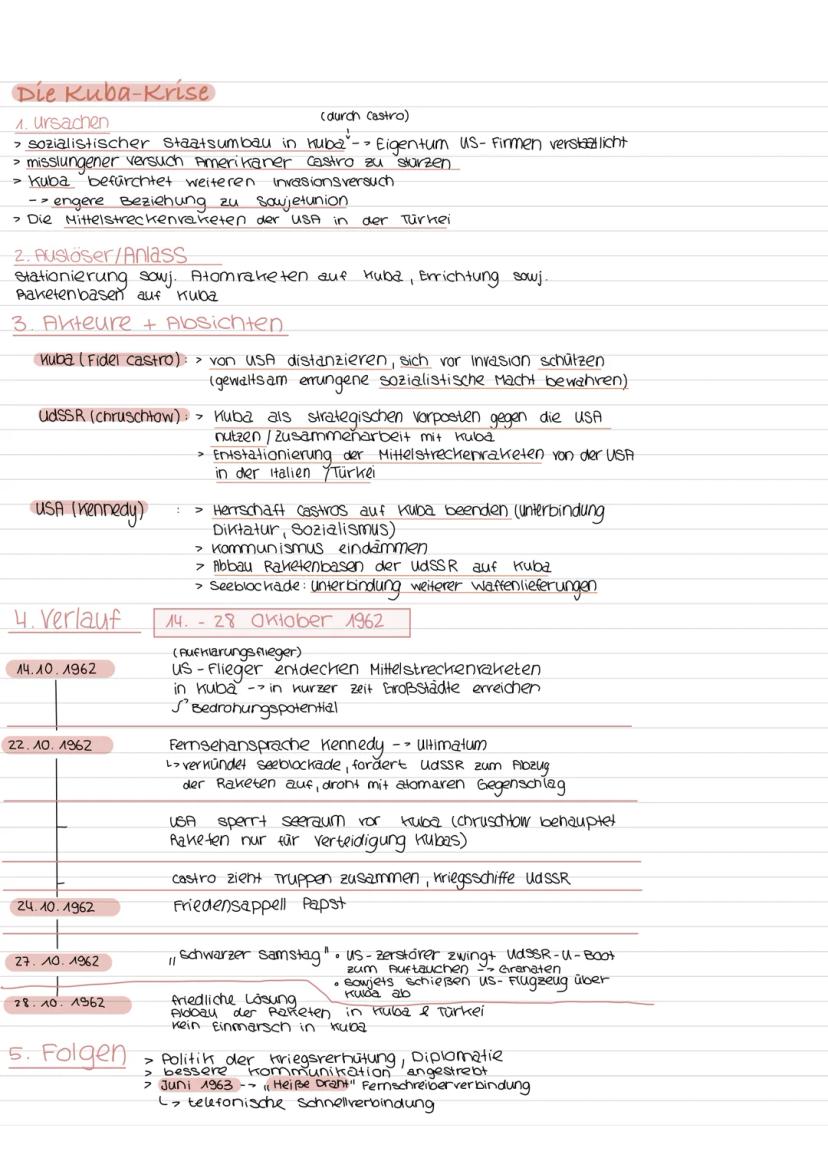 Die Kuba-Krise
1. Ursachen
(durch Castro)
> sozialistischer Staatsumbau in Kuba --> Eigentum US-Firmen verstaatlicht
> misslungener Versuch Amerikaner Castro zu stürzen
> Kuba befürchtet weiteren Invasionsversuch
--> engere Beziehung zu Sowjetunion
> Die Mittelstreckenraketen der USA in der Türkei
2. Auslöser/Anlass
Stationierung sowj. Atomraketen auf Kuba, Errichtung sowj.
Raketenbasen auf Kuba
3. Akteure + Absichten
Kuba (Fidel Castro): > von USA distanzieren, sich vor Invasion schützen
(gewaltsam errungene sozialistische Macht bewahren)
UdSSR (Chruschtow): > Kuba als strategischen Vorposten gegen die USA
nutzen / Zusammenarbeit mit Kuba
> Entstationierung der Mittelstreckenraketen von der USA
in der Italien / Türkei
USA (Kennedy) : > Herrschaft Castros auf Kuba beenden (Unterbindung
Diktatur, Sozialismus)
> Kommunismus eindämmen
> Abbau Raketenbasen der UdSSR auf Kuba
> Seeblockade: Unterbindung weiterer Waffenlieferungen
4. Verlauf 14. - 28 Oktober 1962
(Aufklärungsflieger)
14.10.1962 US-Flieger entdecken Mittelstreckenraketen
in Kuba --> in kurzer Zeit Großstädte erreichen
Bedrohungspotential
22.10.1962 Fernsehansprache Kennedy --> Ultimatum
↳ verkündet Seeblockade, fordert UdSSR zum Abzug
der Raketen auf, droht mit atomaren Gegenschlag
USA sperrt Seeraum vor Kuba (Chruschtow behauptet
Raketen nur für Verteidigung Kubas)
Castro zieht Truppen zusammen, Kriegsschiffe UdSSR
24.10.1962 Friedensappell Papst
27.10.1962 „Schwarzer Samstag" • US-Zerstörer zwingt UdSSR-U-Boot
zum Auftauchen --> Granaten
• Sowjets schießen US-Flugzeug über
Kuba ab
28.10.1962 friedliche Lösung
Abbau der Raketen in Kuba & Türkei
Kein Einmarsch in Kuba
5. Folgen > Politik der Kriegsverhütung, Diplomatie
> bessere Kommunikation angestrebt
> Juni 1963 --> „Heiße Draht" Fernschreiberverbindung
↳ telefonische Schnellverbindung